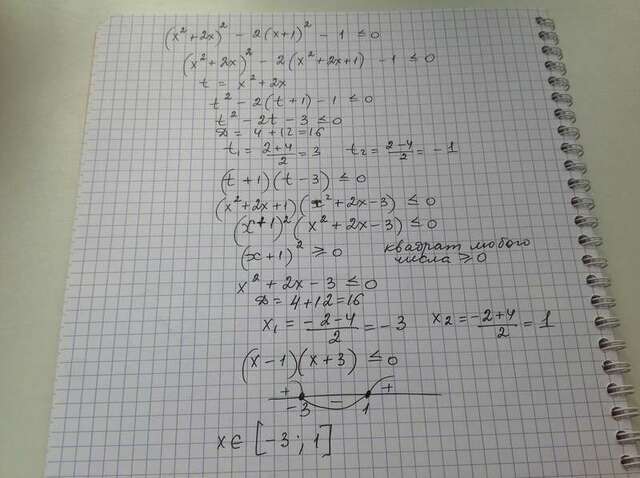 (x² + 2x)² - 2(x+1)² - 1 ≤ 0
(x² + 2x)² - 2(x² + 2x+1) - 1 ≤ 0
t = x² + 2x
t² - 2(t+1) - 1 ≤ 0
t² - 2t - 3 ≤ 0
D = 4+12 = 16
t₁ = (2+4)/2 = 3 t₂ = (2-4)/2 = -1
(t+1)(t-3) ≤ 0
(x² + 2x+1)(x² + 2x-3) ≤ 0
(x+1)²(x² + 2x-3) ≤ 0
(x+1)² ≥ 0 квадрат любого
числа ≥ 0
x² + 2x - 3 ≤ 0
D = 4+12 = 16
x₁ = (-2-4)/2 = -3 x₂ = (-2+4)/2 = 1
(x-1)(x+3) ≤ 0
+ - +
-3 1
x ∈ [-3; 1]